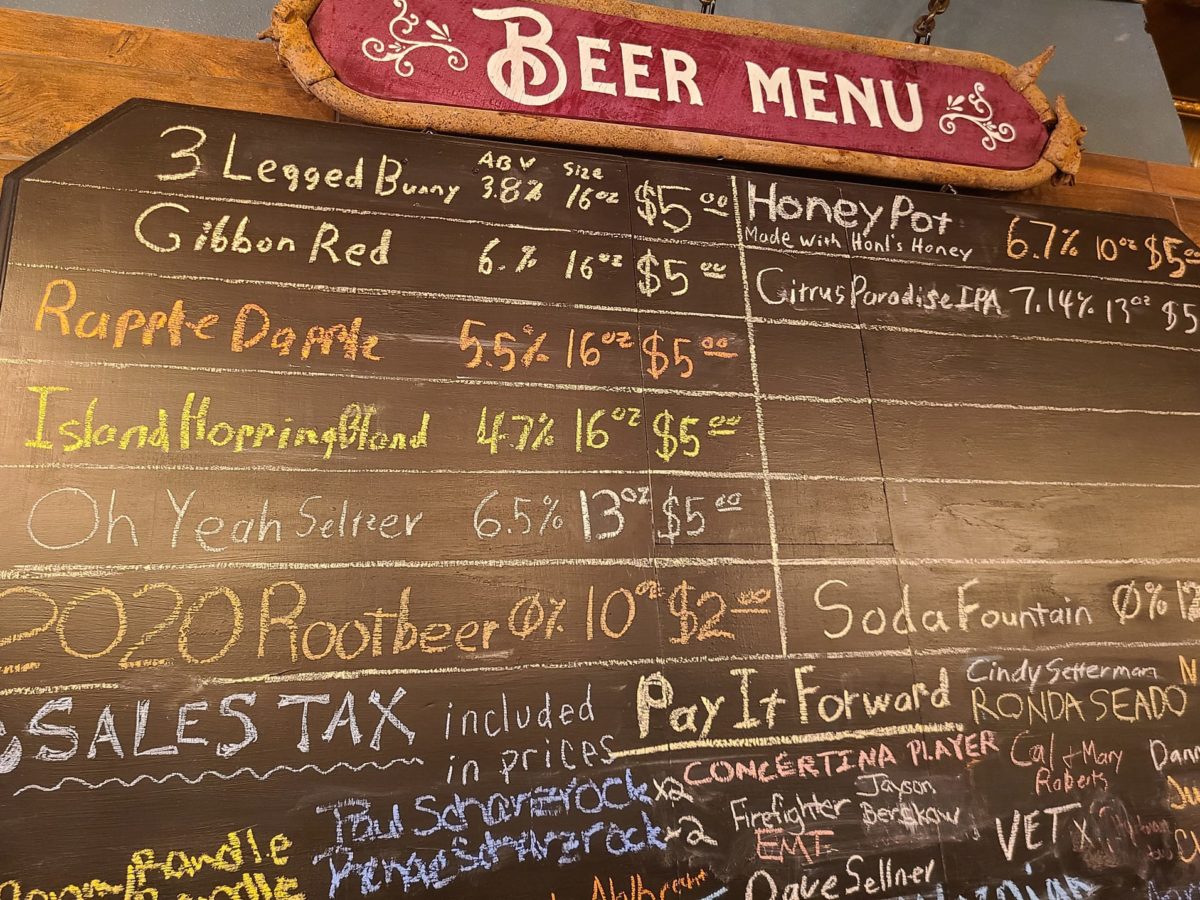 BEER MENU
ABV Size
3 Legged Bunny 3.8% 16oz $5.00
Gibbon Red 6.% 16oz $5.00
Rapple Dapple 5.5% 16oz $5.00
Island Hopping Blond 4.7% 16oz $5.00
Oh Yeah Seltzer 6.5% 13oz $5.00
2020 Rootbeer 0% 10oz $2.00
Honey Pot 6.7% 10oz $5.00
Made with Honl's Honey
Citrus Paradise IPA 7.14% 13oz $5
Soda Fountain 0% 12
SALES TAX included
in prices
Pay It Forward
Cindy Setterman
RONDA SEADO
CONCERTINA PLAYER
Cal + Mary
Roberts
Paul Scharzrock x2
Renae Scharzrock x2
Firefighter
EMT
Jayson
Berskow
VET x
Dave Sellner
Randle